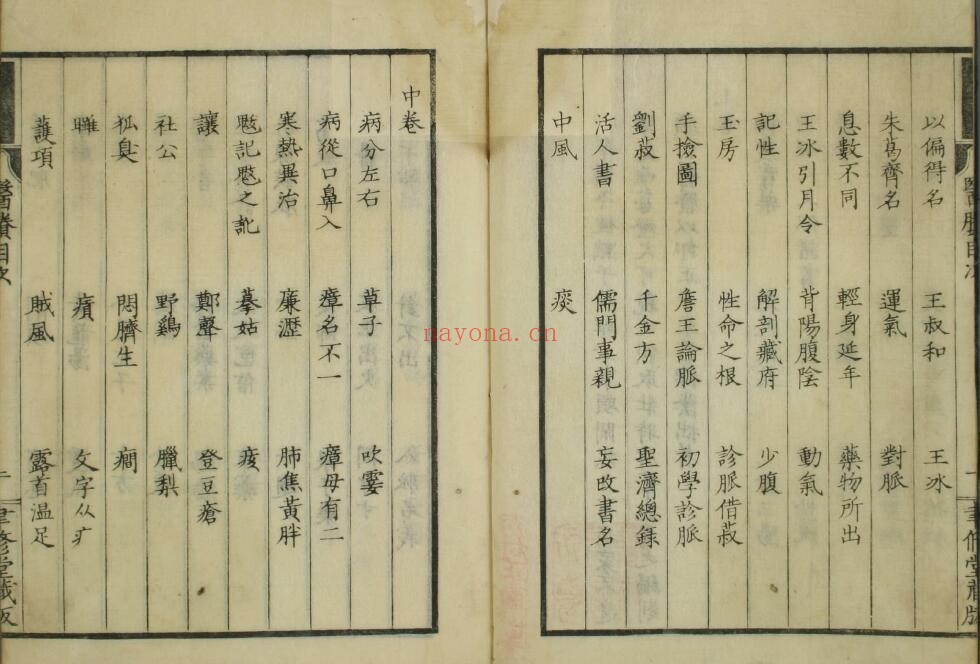 以偏得名 王叔和 王冰
朱葛齊名 運氣 對脈
息數不同 輕身延年 藥物所出
王冰引月令 背陽腹陰 動氣
記性 解剖藏府 少腹
玉房 性命之根 診脈借菽
手撿圖 詹王論脈 初學診脈
劉菽 千金方 聖濟總錄
活人書 儒門事親 妄改書名
中風 痰
中卷
病分左右 草子 吹霎
病從口鼻入 瘴名不一 瘴母有二
寒熱異治 㾾瀝 肺焦黃胖
馘記馘之訛 摹姑 痎
讓 鄭聲 登豆瘡
社公 野鷄 臘梨
狐臭 悶臍生 癇
雖 㿉 文字从疒
護項 賊風 露首溫足
醫賸目次
聿修堂藏版
醫賸目次
一 聿修堂藏版
nayona.cn